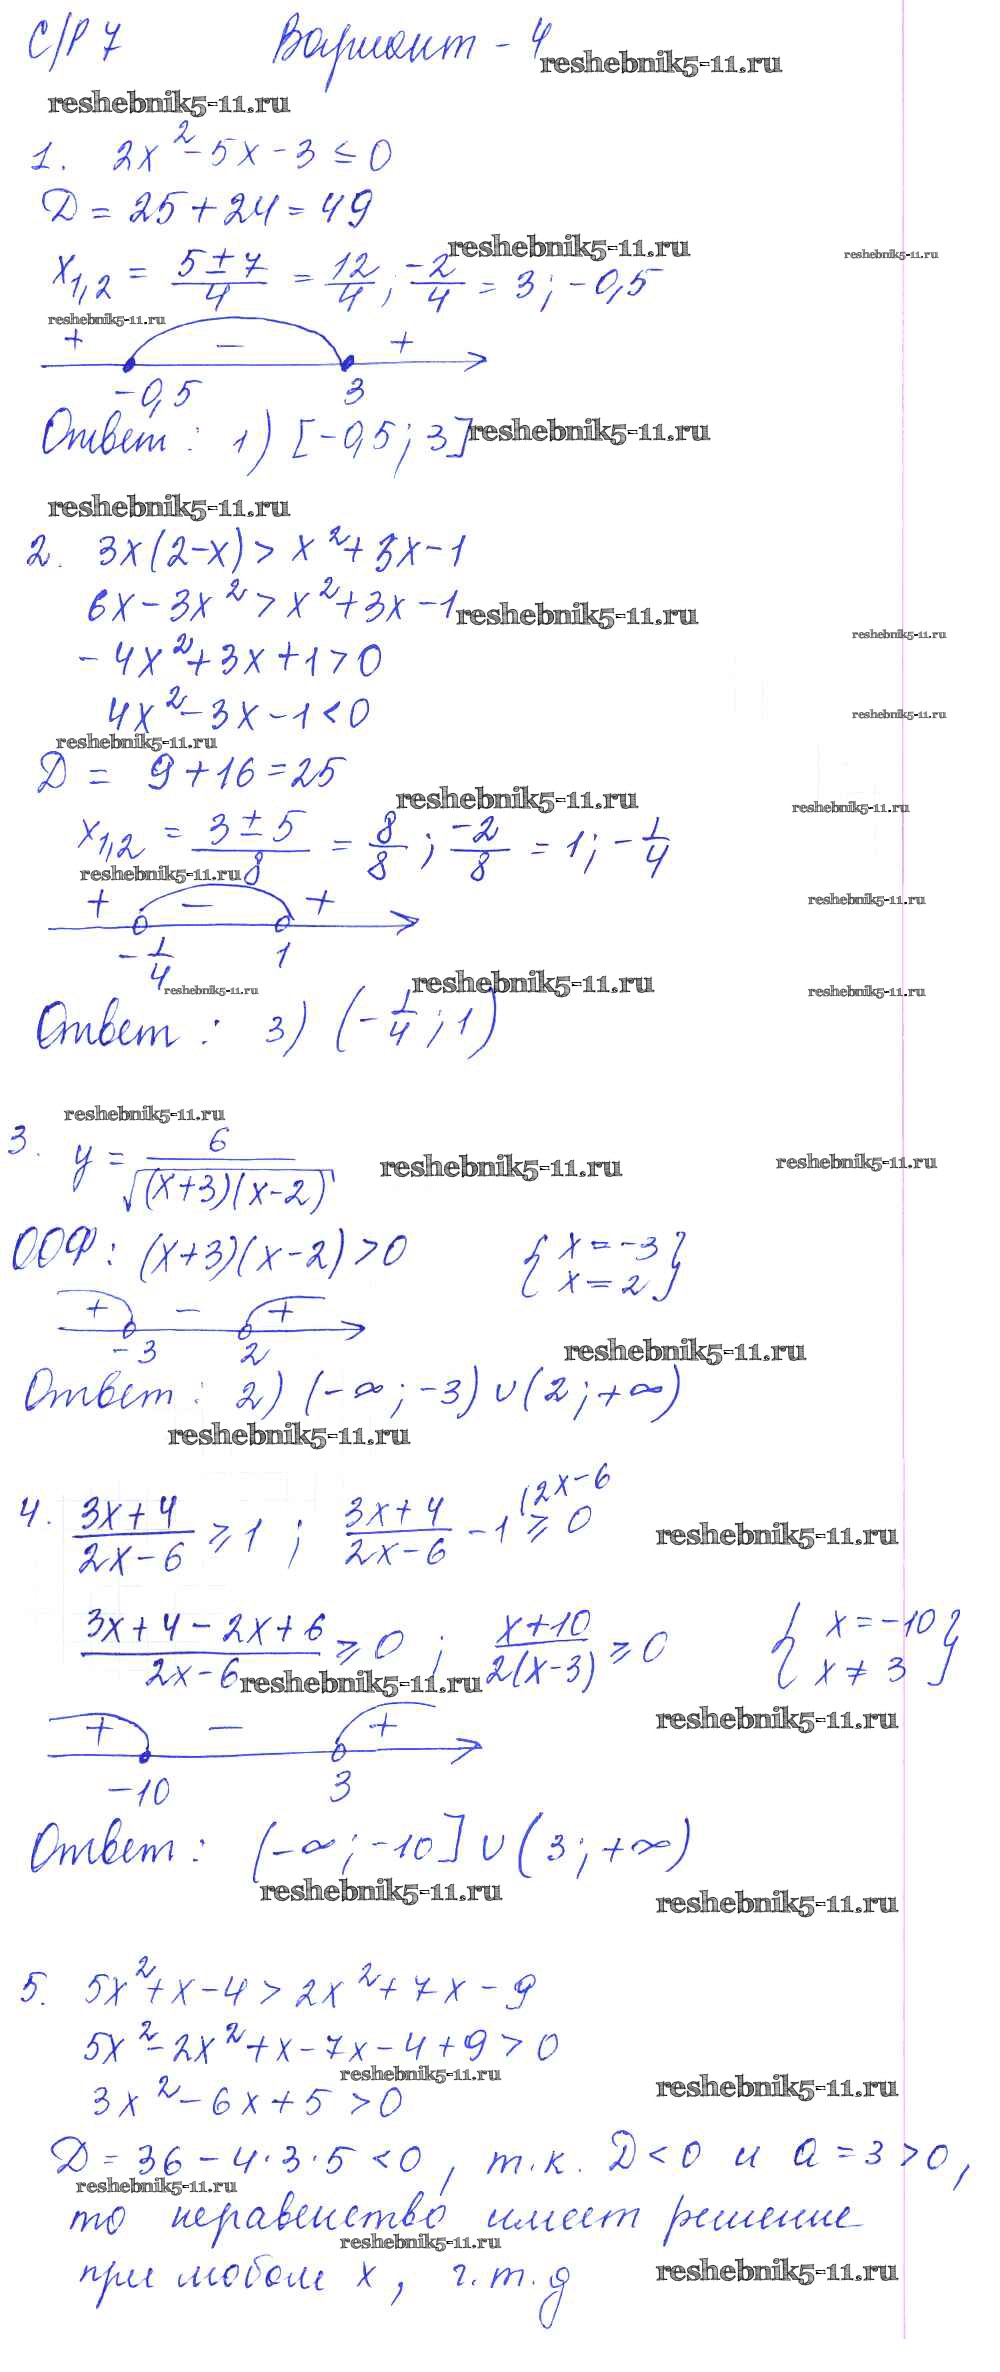 С/Р 7 Вариант - 4
reshebnik5-11.ru
reshebnik5-11.ru
1. 2x² - 5x - 3 ≤ 0
Д = 25 + 24 = 49
reshebnik5-11.ru
reshebnik5-11.ru
x₁,₂ = (5 ± 7)/4 = 12/4 ; -2/4 = 3 ; -0,5
reshebnik5-11.ru
+ − +
-0,5 3
Ответ : 1) [-0,5 ; 3]
reshebnik5-11.ru
reshebnik5-11.ru
2. 3x(2-x) > x² + 3x - 1
6x - 3x² > x² + 3x - 1
reshebnik5-11.ru
reshebnik5-11.ru
-4x² + 3x + 1 > 0
4x² - 3x - 1 < 0
reshebnik5-11.ru
reshebnik5-11.ru
Д = 9 + 16 = 25
reshebnik5-11.ru
reshebnik5-11.ru
x₁,₂ = (3 ± 5)/8 = 8/8 ; -2/8 = 1 ; -1/4
reshebnik5-11.ru
reshebnik5-11.ru
+ − +
-1/4 1
reshebnik5-11.ru
reshebnik5-11.ru
reshebnik5-11.ru
Ответ : 3) (-1/4 ; 1)
reshebnik5-11.ru
3. y = 6/√((x+3)(x-2))
reshebnik5-11.ru
reshebnik5-11.ru
ООФ : (x+3)(x-2) > 0 { x = -3
x = 2 }
+ − +
-3 2
reshebnik5-11.ru
Ответ : 2) (-∞ ; -3) ∪ (2 ; +∞)
reshebnik5-11.ru
4. (3x+4)/(2x-6) ≥ 1 ; (3x+4)/(2x-6) - 1 (2x-6 ≥ 0
reshebnik5-11.ru
(3x+4-2x+6)/(2x-6) ≥ 0 ; (x+10)/(2(x-3)) ≥ 0 { x = -10
x ≠ 3 }
reshebnik5-11.ru
reshebnik5-11.ru
+ − +
-10 3
Ответ : (-∞ ; -10] ∪ (3 ; +∞)
reshebnik5-11.ru
reshebnik5-11.ru
5. 5x² + x - 4 > 2x² + 7x - 9
5x² - 2x² + x - 7x - 4 + 9 > 0
reshebnik5-11.ru
reshebnik5-11.ru
3x² - 6x + 5 > 0
Д = 36 - 4·3·5 < 0 , т.к. Д < 0 и a = 3 > 0,
reshebnik5-11.ru
то неравенство имеет решение
reshebnik5-11.ru
при любом x, ч.т.д
reshebnik5-11.ru